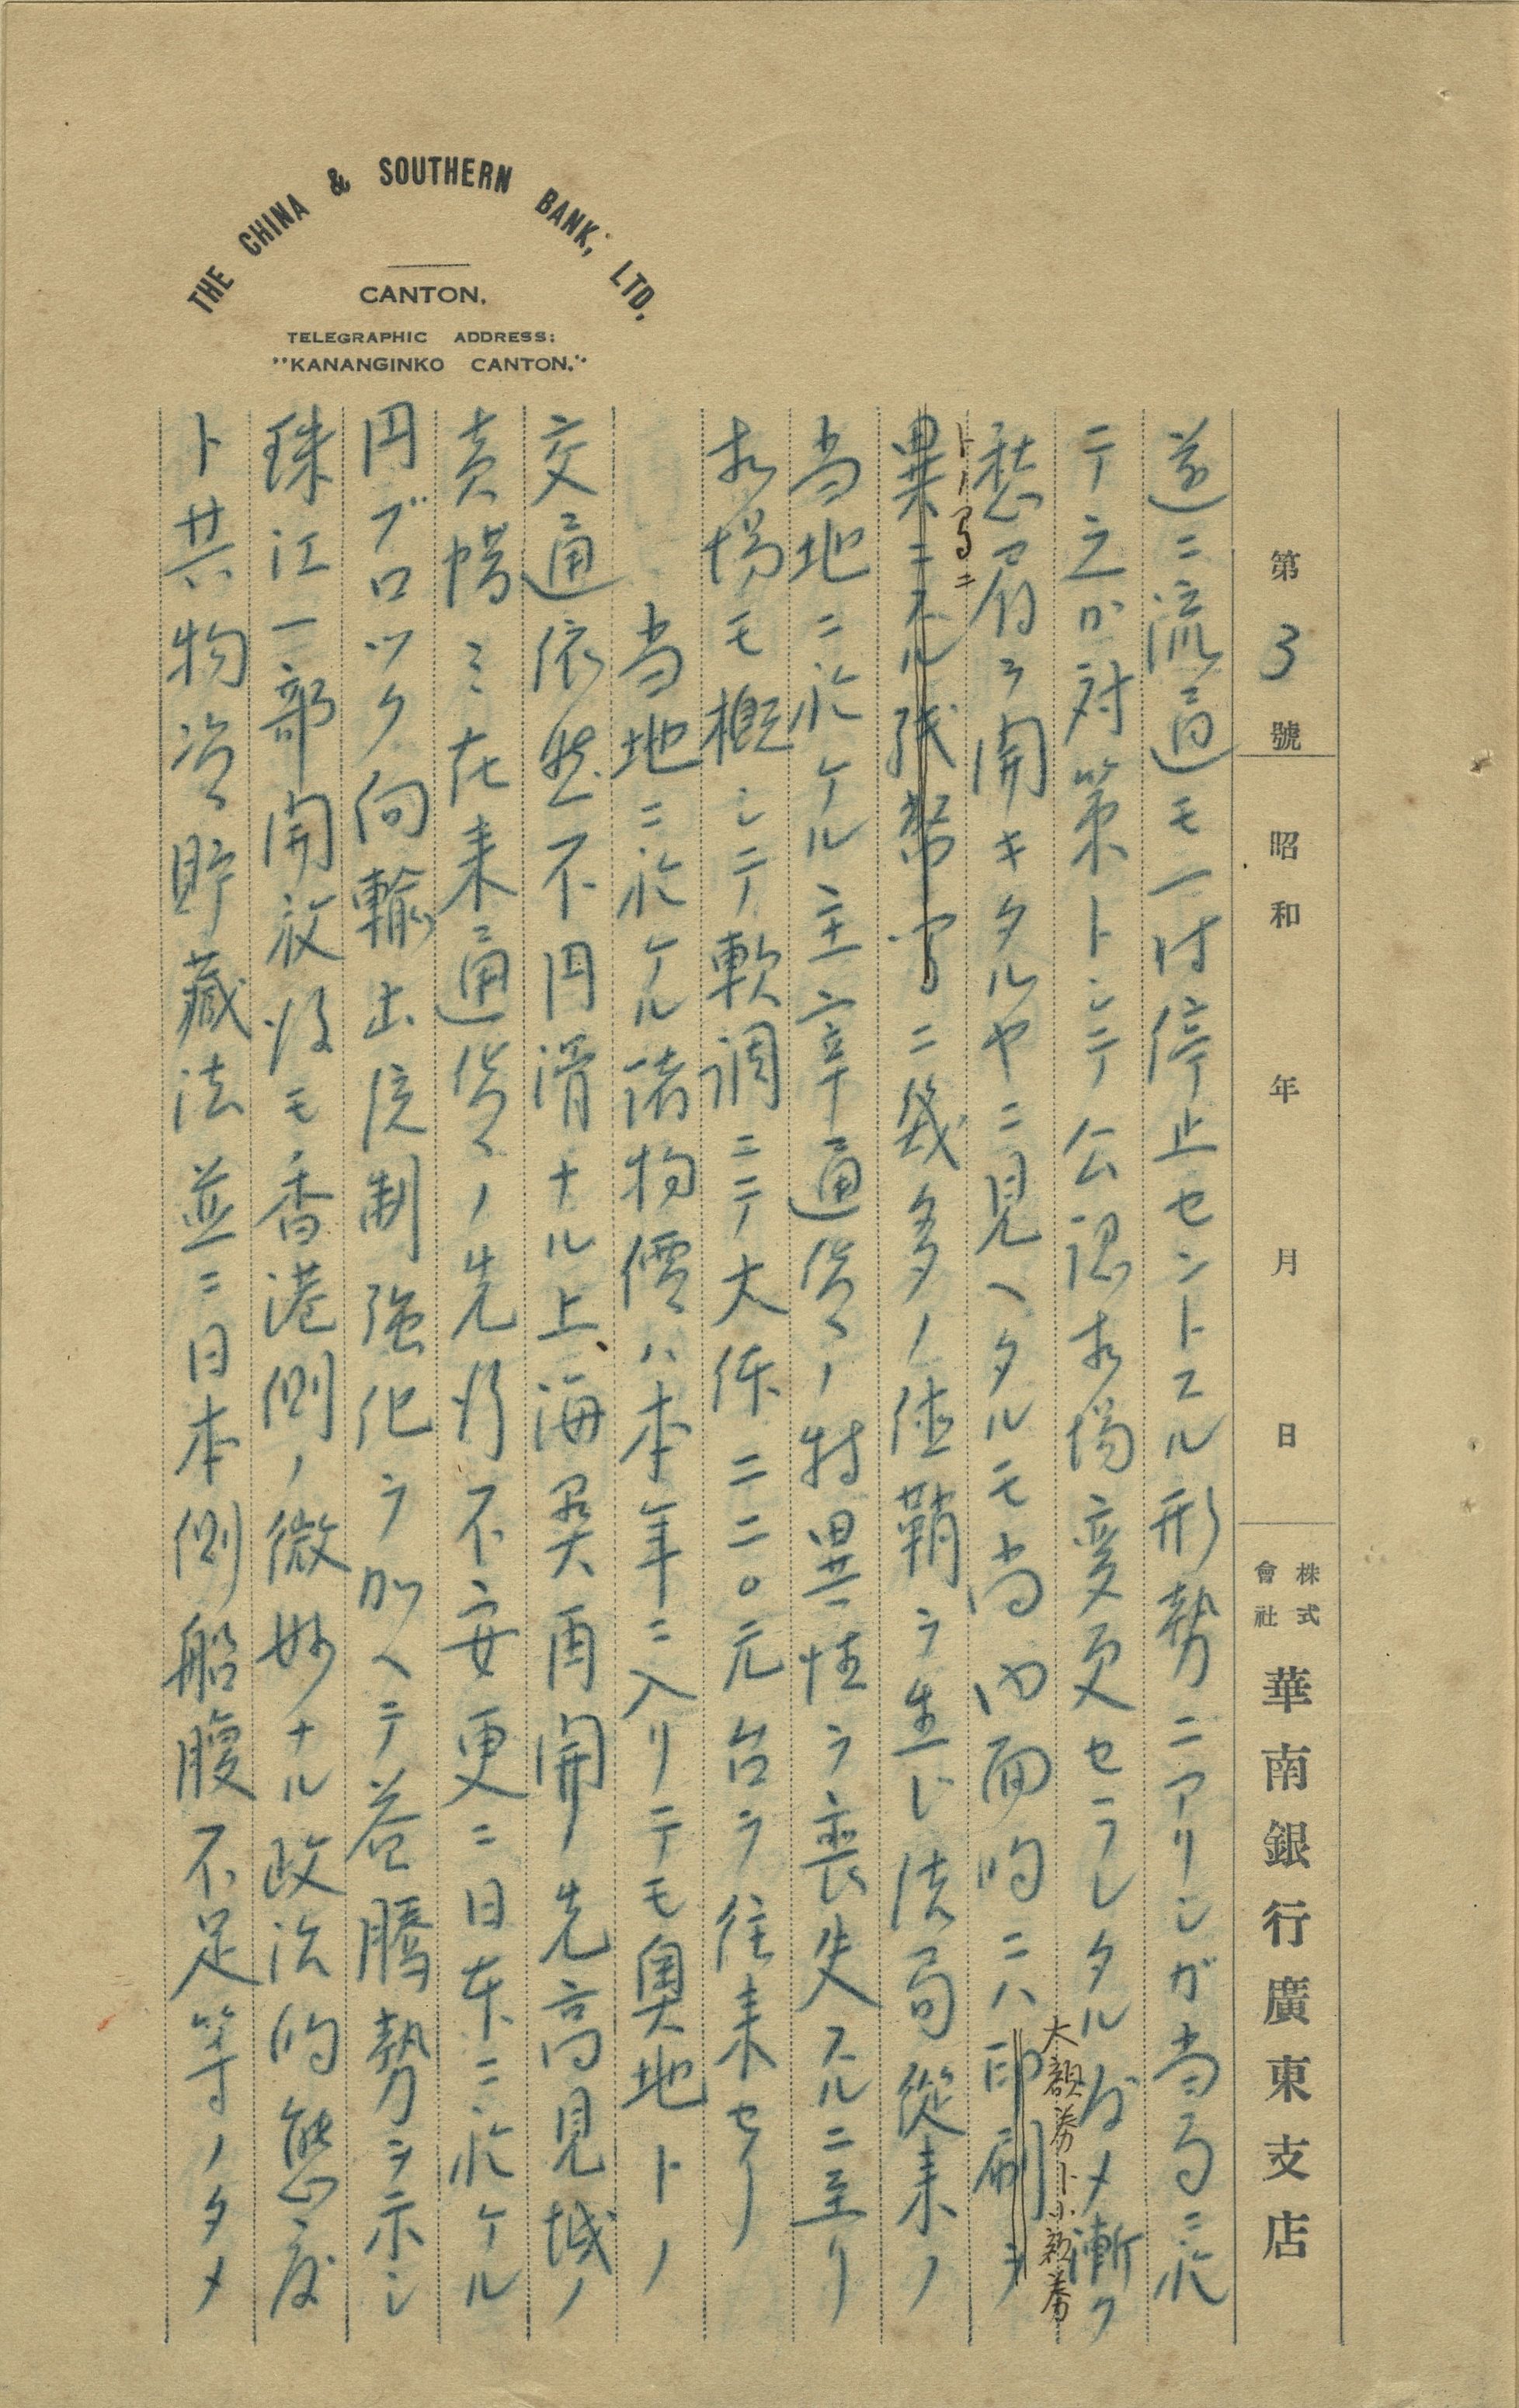 THE CHINA & SOUTHERN BANK, LTD.
CANTON.
TELEGRAPHIC ADDRESS:
"KANANGINKO CANTON."
第3號 昭和 年 月 日 株式會社 華南銀行廣東支店
遂ニ流通モ一時停止セントスル形勢ニアリシガ当局ニ於
テ之ガ対策トシテ公認相場変更セラレタルガタメ漸ク
愁眉ヲ開キタルヤニ見ヘタルモ尚内面的ニハ印刷ヲ
大額券ト小額券
異ニスル紙幣間ニ幾多ノ値鞘ヲ生ジ結局従来ノ
トノ間ニ
当地ニ於ケル主宰通貨ノ特異性ヲ喪失スルニ至リ
相場モ概シテ軟調ニテ大体二二〇元台ヲ往来セリ
当地ニ於ケル諸物價ハ本年ニ入リテモ奥地トノ
交通依然不円滑ナル上、海異再開ノ先高見越ノ
売惜ミ在来通貨ノ先行不安更ニ日本ニ於ケル
円ブロック向輸出統制強化ヲ加ヘテ益騰勢ヲ示シ
珠江一部開放後モ香港側ノ微妙ナル政治的態度
ト共物資貯藏法並ニ日本側船腹不足等ノタメ